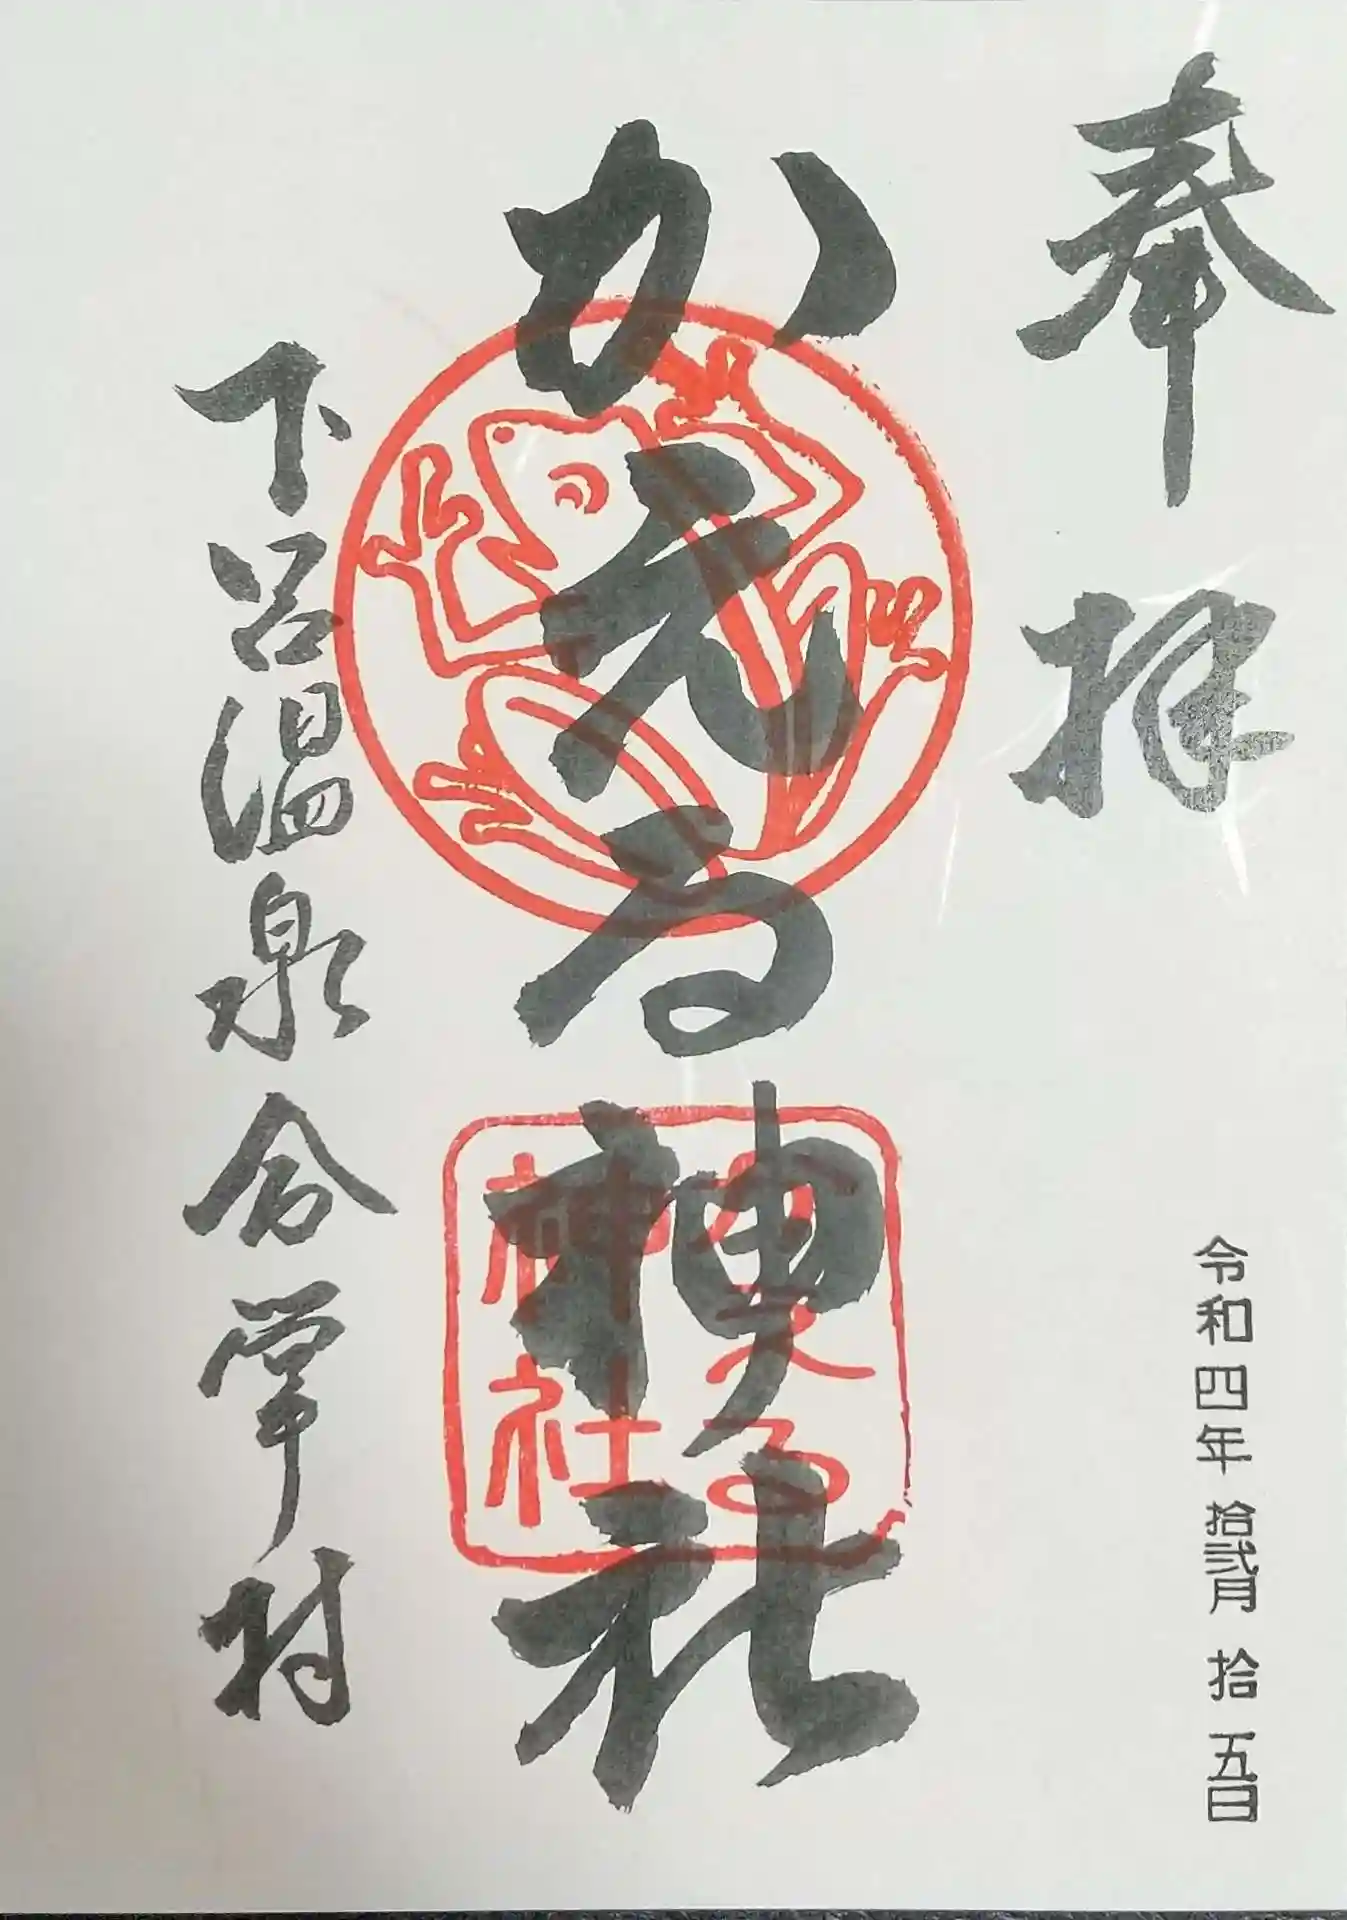 奉拝
令和四年拾弐月拾五日
かえる神社
かえる
神社
下呂温泉合掌村